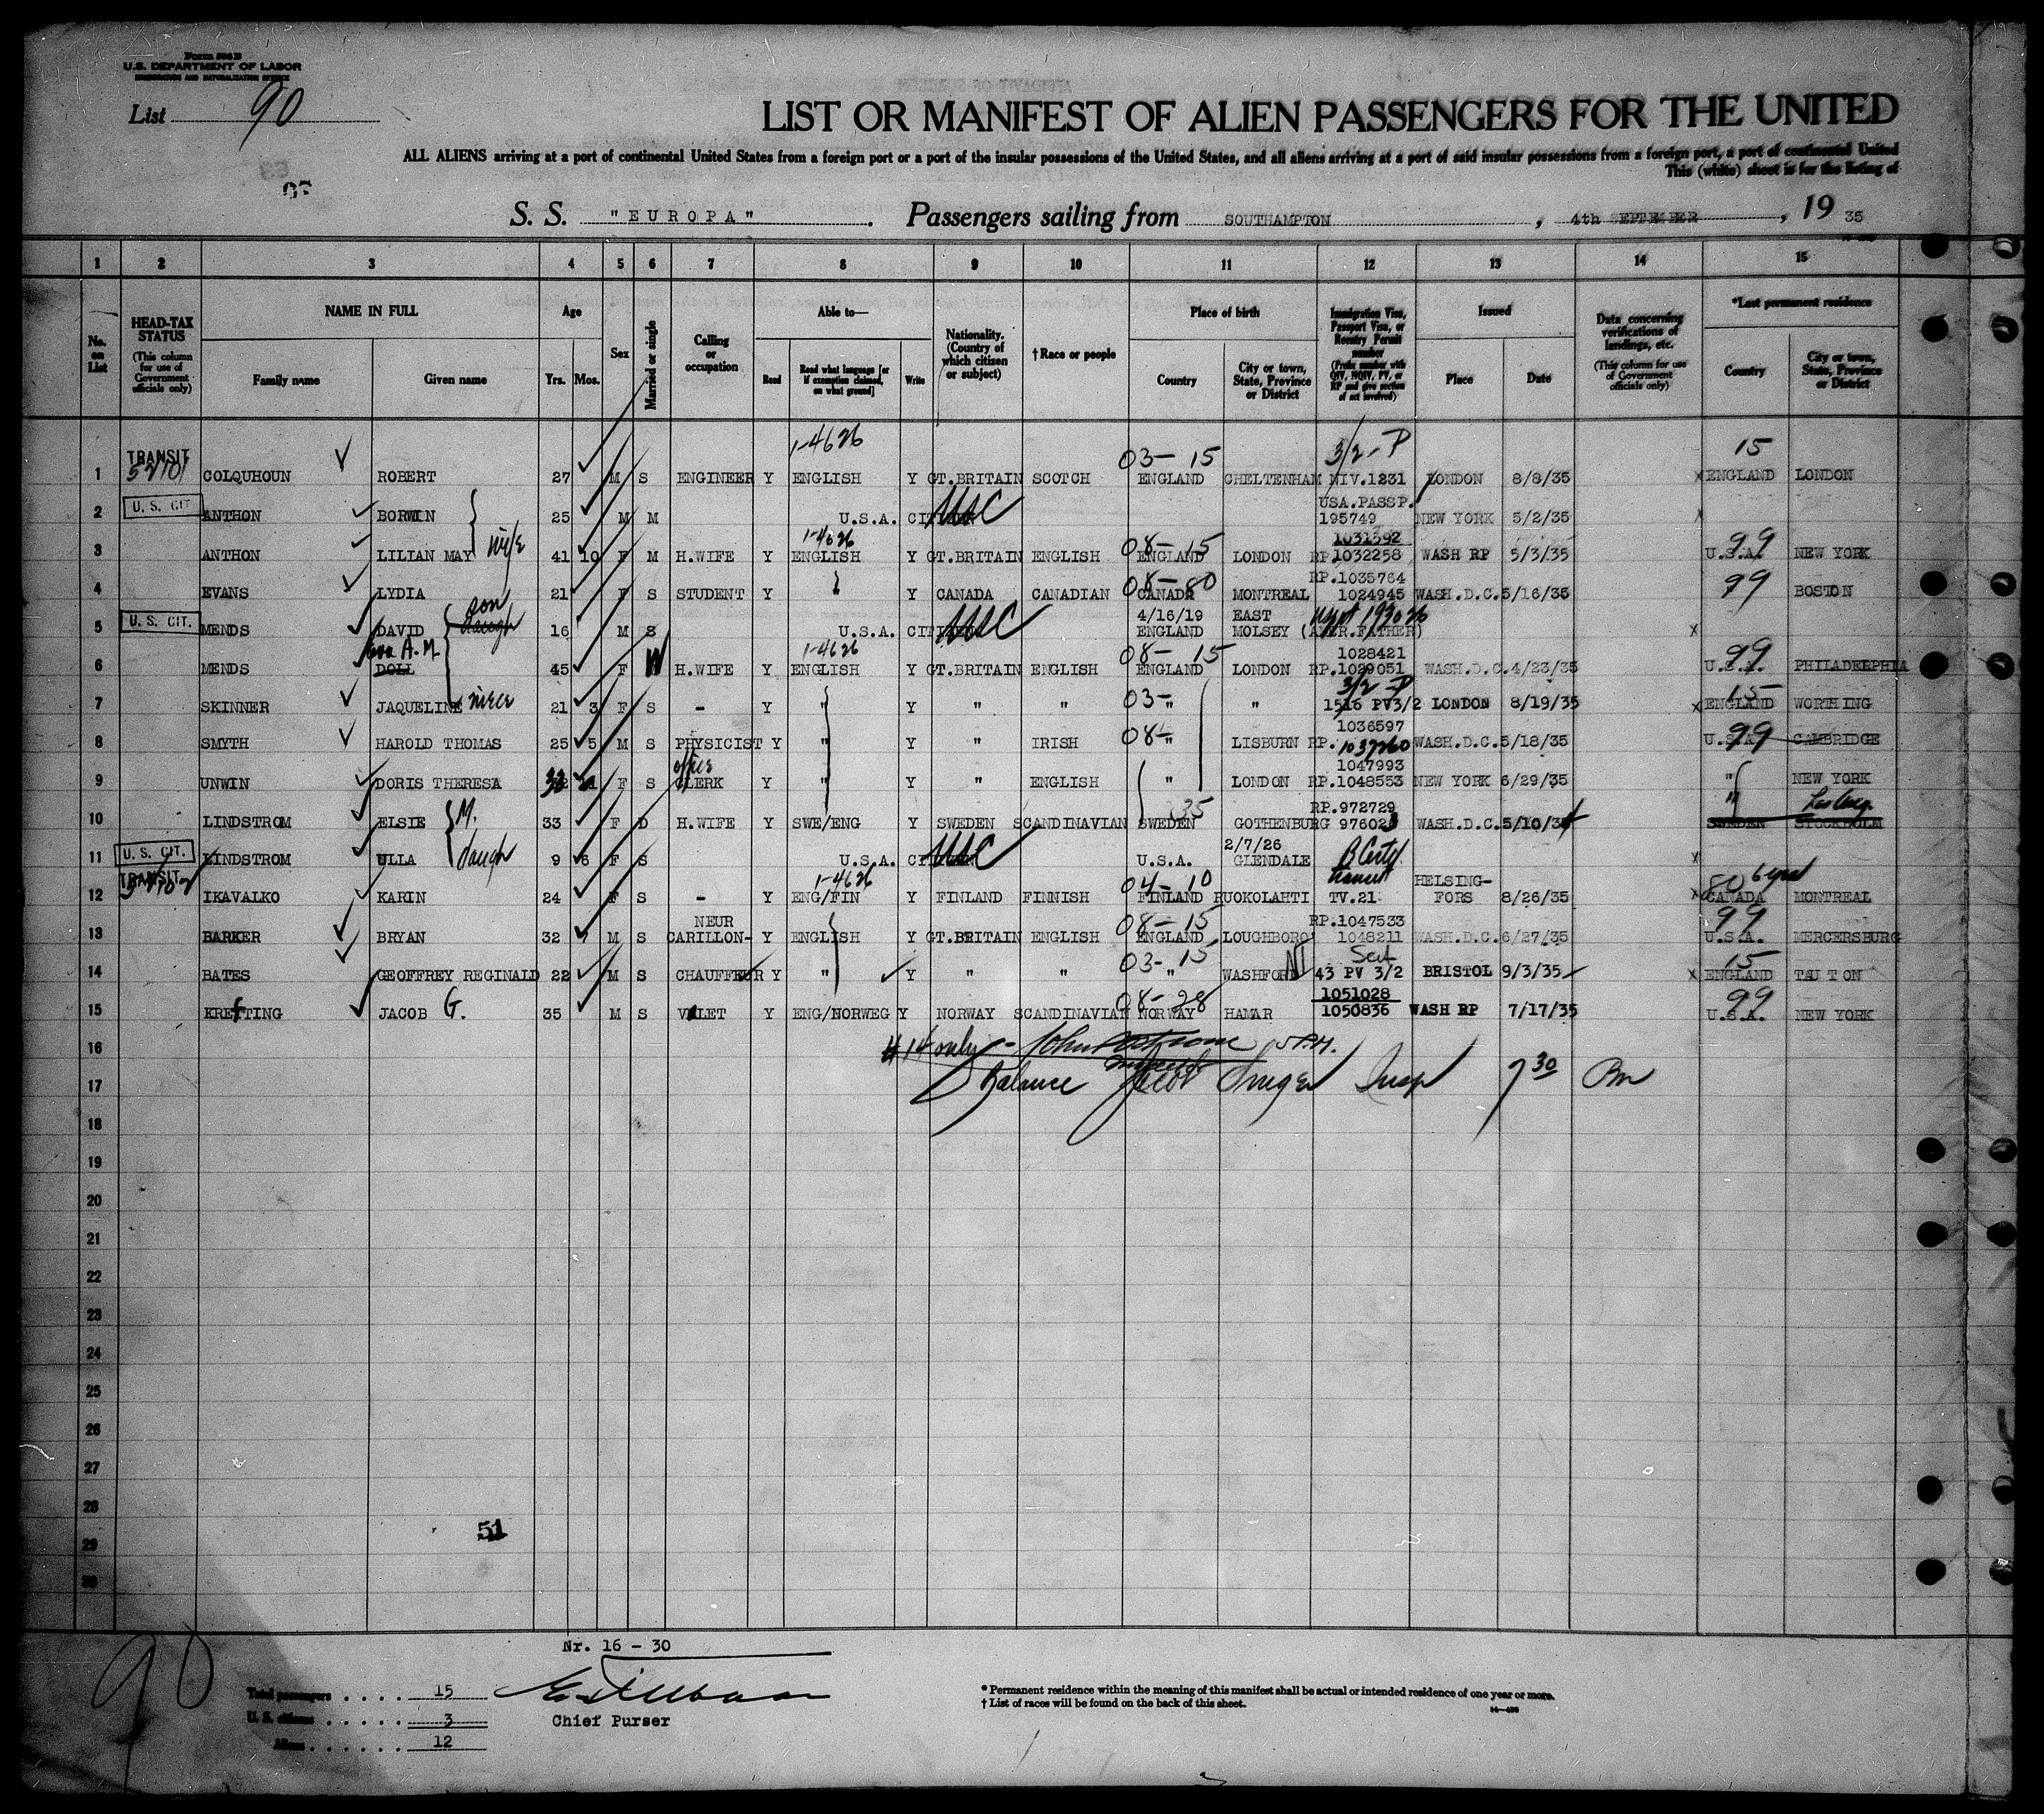 Form 500 B
U.S. DEPARTMENT OF LABOR
IMMIGRATION AND NATURALIZATION SERVICE
List 90
LIST OR MANIFEST OF ALIEN PASSENGERS FOR THE UNITED
ALL ALIENS arriving at a port of continental United States from a foreign port or a port of the insular possessions of the United States, and all aliens arriving at a port of said insular possessions from a foreign port, a port of continental United
This (white) sheet is for the listing of
S. S. "EUROPA". Passengers sailing from SOUTHAMPTON, 4th SEPTEMBER, 19 35
1 2 3 4 5 6 7 8 9 10 11 12 13 14 15
No. on List
HEAD-TAX STATUS (This column for use of Government officials only)
NAME IN FULL Family name Given name
Age Yrs. Mos.
Sex
Married or single
Calling or occupation
Able to— Read Read what language [or if exemption claimed, on what ground] Write
Nationality. (Country of which citizen or subject)
†Race or people
Place of birth Country City or town, State, Province or District
Immigration Visa, Passport Visa, or Reentry Permit number (Prefix number with QIV, NQIV, PV, or RP and give section of act involved)
Issued Place Date
Data concerning verifications of landings, etc. (This column for use of Government officials only)
*Last permanent residence Country City or town, State, Province or District
1-4626 03-15 3/2-P 15
1 TRANSIT 52101 COLQUHOUN ROBERT 27 M S ENGINEER Y ENGLISH Y GT.BRITAIN SCOTCH ENGLAND CHELTENHAM NIV.1231 LONDON 8/8/35 x ENGLAND LONDON
2 U. S. CIT ANTHON BORWIN 25 M M U.S.A. CITIZEN USC USA.PASSP. 195749 NEW YORK 5/2/35 x
wife 1-4626 08-15 1031392 99
3 ANTHON LILIAN MAY 41 10 F M H.WIFE Y ENGLISH Y GT.BRITAIN ENGLISH ENGLAND LONDON RP.1032258 WASH RP 5/3/35 U.S.A. NEW YORK
08-80 RP.1035764 99
4 EVANS LYDIA 21 F S STUDENT Y Y CANADA CANADIAN CANADA MONTREAL 1024945 WASH.D.C. 5/16/35 BOSTON
son daugh 4/16/19 EAST
5 U. S. CIT. MENDS DAVID 16 M S U.S.A. CITIZEN USC ENGLAND MOLSEY (AMER.FATHER) x
Eva A.M. 1-4626 08-15 1028421 99
6 MENDS DOLL 45 F W H.WIFE Y ENGLISH Y GT.BRITAIN ENGLISH ENGLAND LONDON RP.1029051 WASH.D.C. 4/23/35 U.S.A. PHILADELPHIA
niece 03- 3/2-P 15
7 SKINNER JAQUELINE 21 3 F S - Y " Y " " " " 1516 PV3/2 LONDON 8/19/35 x ENGLAND WORTHING
08- 1036597 99
8 SMYTH HAROLD THOMAS 25 5 M S PHYSICIST Y " Y " IRISH " LISBURN RP.1037260 WASH.D.C. 5/18/35 U.S.A. CAMBRIDGE
office 1047993
9 UNWIN DORIS THERESA 32 F S CLERK Y " Y " ENGLISH " LONDON RP.1048553 NEW YORK 6/29/35 " NEW YORK
M. 35 RP.972729 " Los Ang.
10 LINDSTROM ELSIE 33 F D H.WIFE Y SWE/ENG Y SWEDEN SCANDINAVIAN SWEDEN GOTHENBURG 976023 WASH.D.C. 5/10/34 SWEDEN STOCKHOLM
2/7/26
11 U. S. CIT. LINDSTROM ULLA daugh 9 6 F S U.S.A. CITIZEN USC U.S.A. GLENDALE B Certf x
1-4626 04-10 transit HELSING- 80 6 yrs
12 TRANSIT 52102 IKAVALKO KARIN 24 F S - Y ENG/FIN Y FINLAND FINNISH FINLAND RUOKOLAHTI TV.21 FORS 8/26/35 x CANADA MONTREAL
NEUR 08-15 RP.1047533 99
13 BARKER BRYAN 32 7 M S CARILLON- Y ENGLISH Y GT.BRITAIN ENGLISH ENGLAND LOUGHBORO' 1048211 WASH.D.C. 6/27/35 U.S.A. MERCERSBURG
03-15 15
14 BATES GEOFFREY REGINALD 22 M S CHAUFFEUR Y " Y " " " WASHFORD 43 PV 3/2 BRISTOL 9/3/35 x ENGLAND TAUTON
08-28 1051028 99
15 KREFTING JACOB G. 35 M S VALET Y ENG/NORWEG Y NORWAY SCANDINAVIAN NORWAY HAMAR 1050836 WASH RP 7/17/35 U.S.A. NEW YORK
16 #14 only - 5 P.M.
17 Balance Jacob Insp 7 30 Pm
18
19
20
21
22
23
24
25
26
27
28
51
29
30
Nr. 16 - 30
90
Total passengers . . . . 15
U. S. citizens . . . . . 3
Aliens . . . . . . 12
Chief Purser
* Permanent residence within the meaning of this manifest shall be actual or intended residence of one year or more.
† List of races will be found on the back of this sheet.